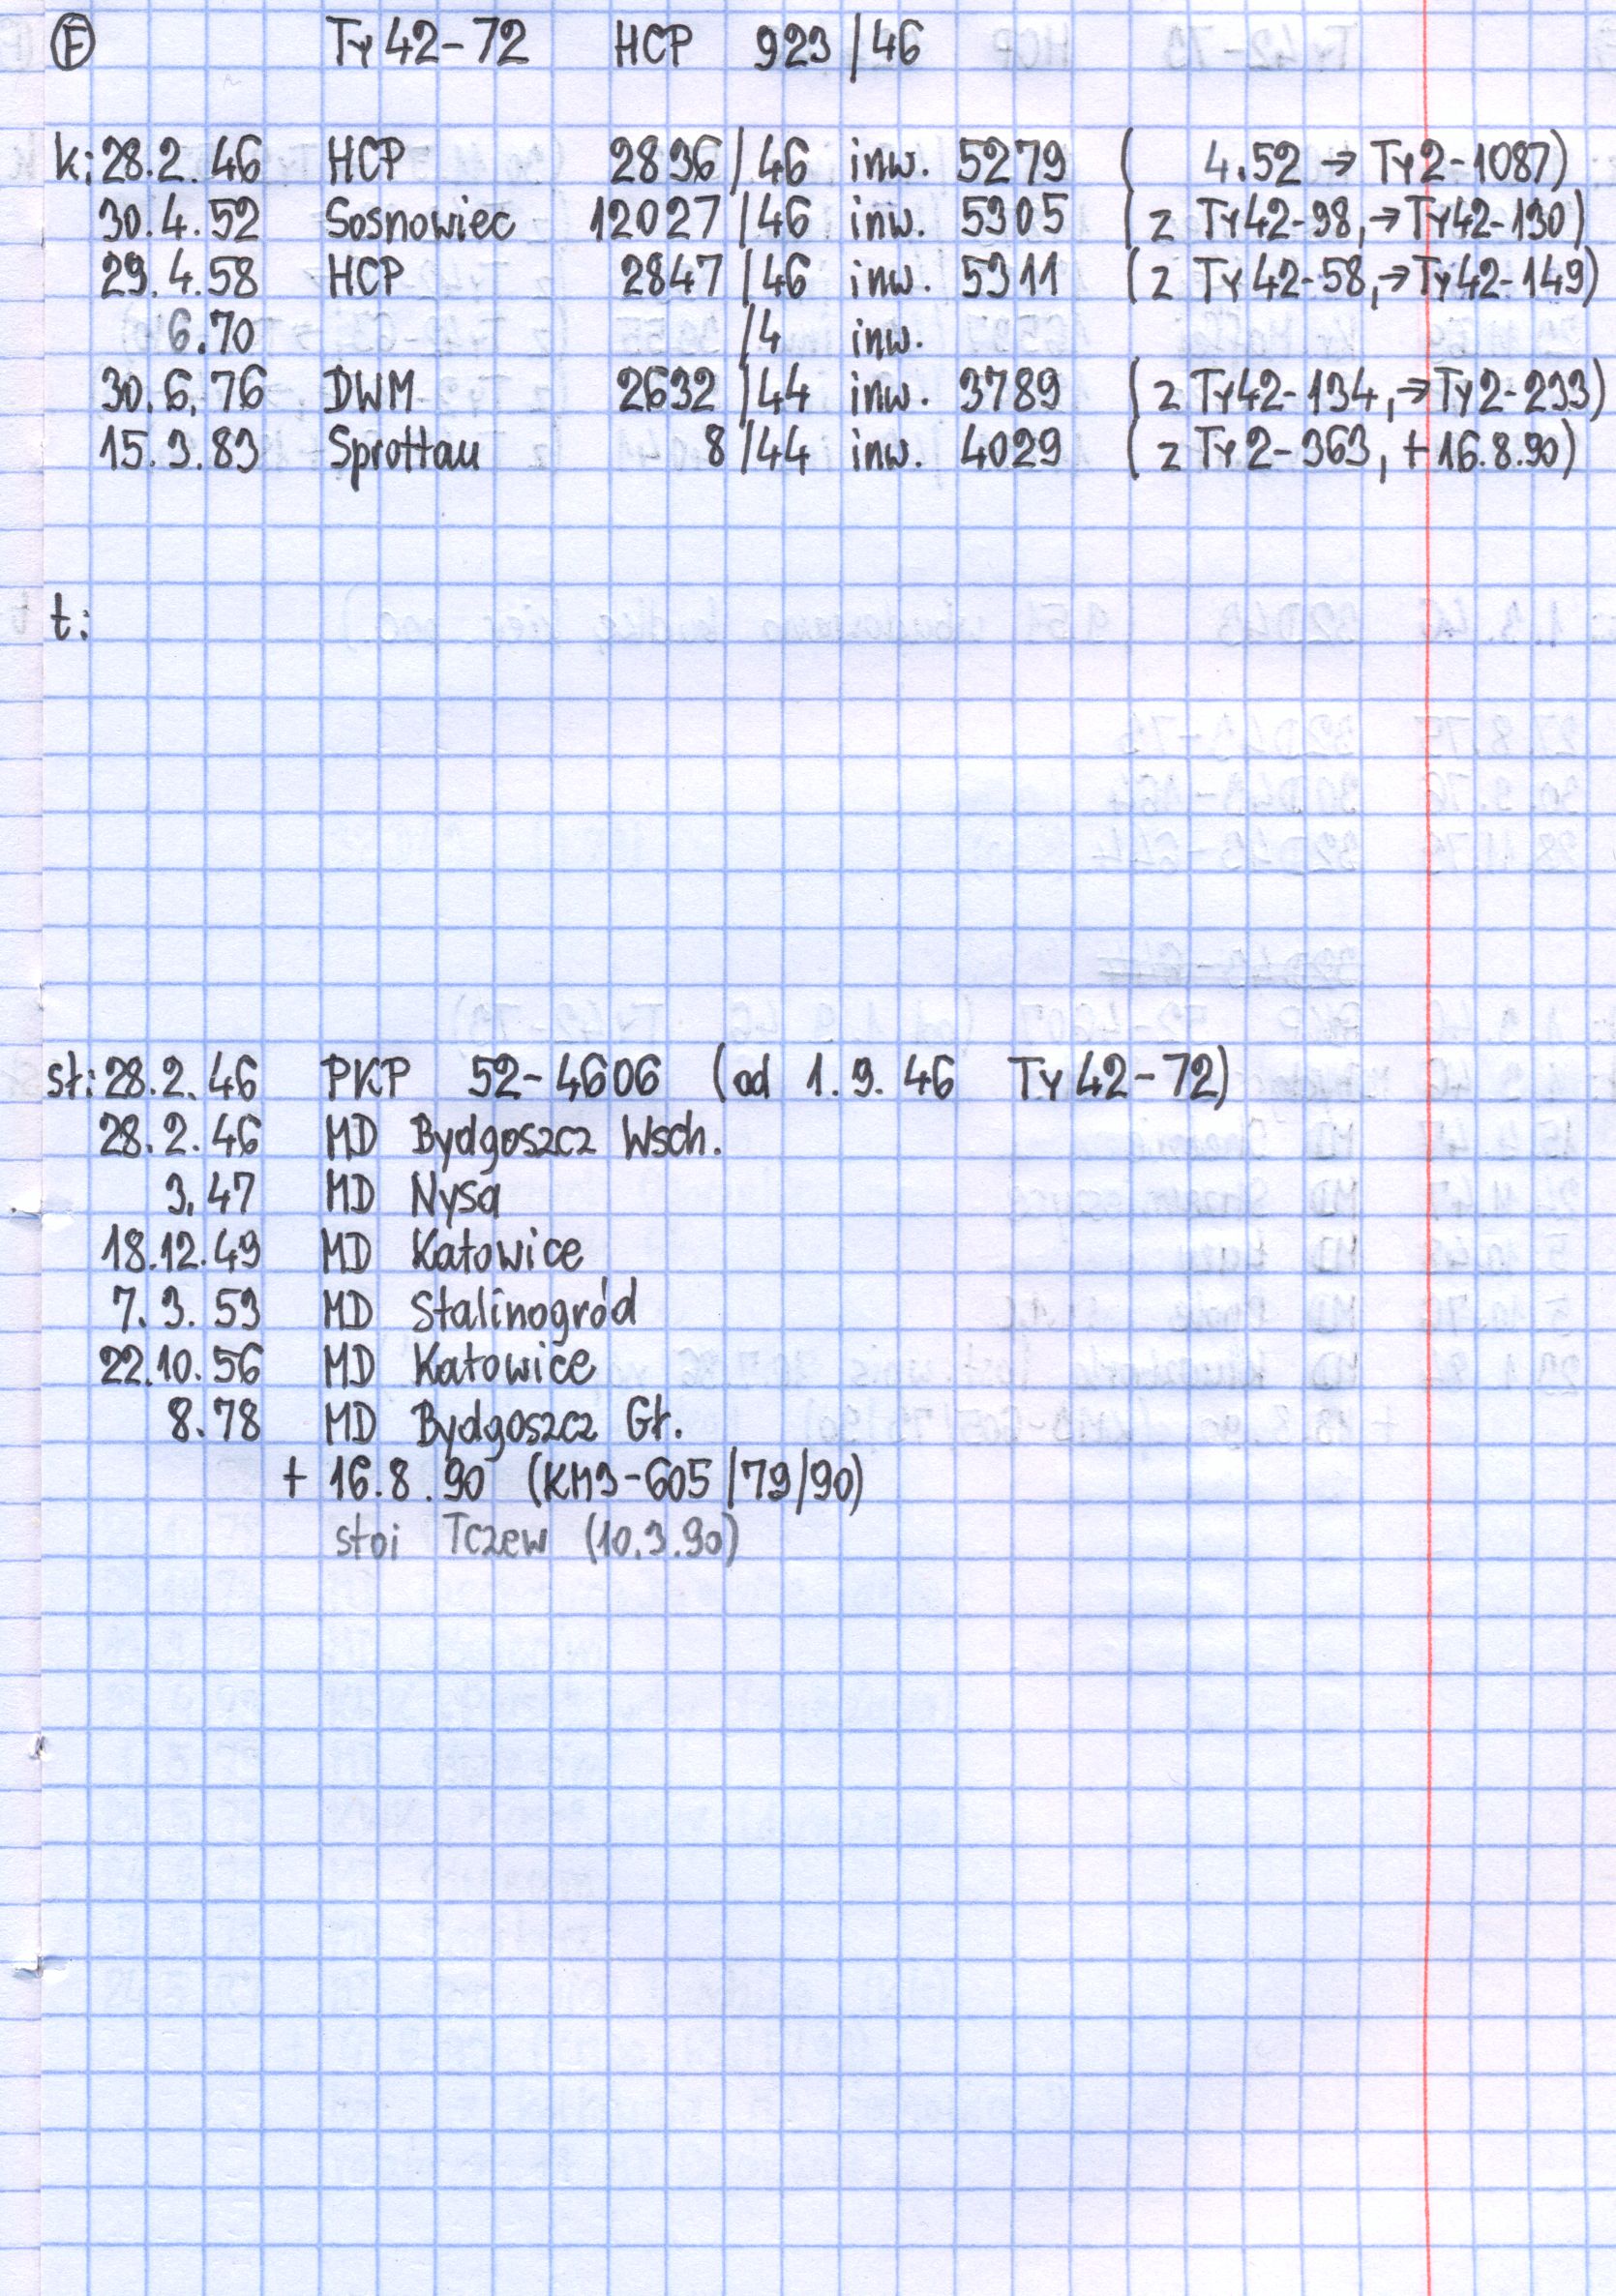 Ⓕ Ty42-72 HCP 923/46
k: 28.2.46 HCP 2836/46 inw. 5279 ( 4.52 → Ty2-1087)
30.4.52 Sosnowiec 12027/46 inw. 5305 (z Ty42-98, → Ty42-130)
29.4.58 HCP 2847/46 inw. 5311 (z Ty42-58, → Ty42-149)
6.70 /4 inw.
30.6.76 DWM 2632/44 inw. 3789 (z Ty42-134, → Ty2-233)
15.3.83 Sprottau 8/44 inw. 4029 (z Ty2-363, + 16.8.90)
t:
st: 28.2.46 PKP 52-4606 (od 1.9.46 Ty42-72)
28.2.46 MD Bydgoszcz Wsch.
3.47 MD Nysa
18.12.49 MD Katowice
7.3.53 MD Stalinogród
22.10.56 MD Katowice
8.78 MD Bydgoszcz Gł.
+ 16.8.90 (KM3-605/79/90)
stoi Tczew (10.3.90)